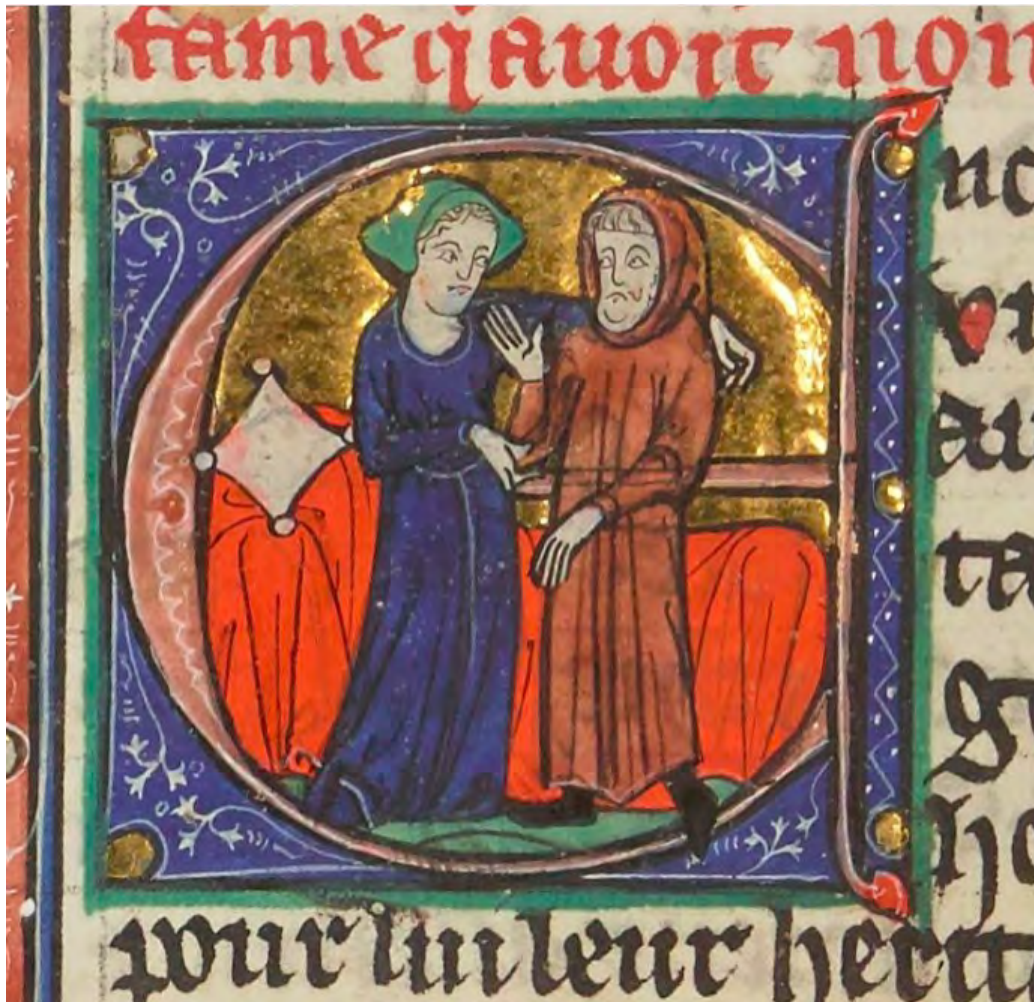 fame qauoit non
E no
au
ta
pour lui leur herit